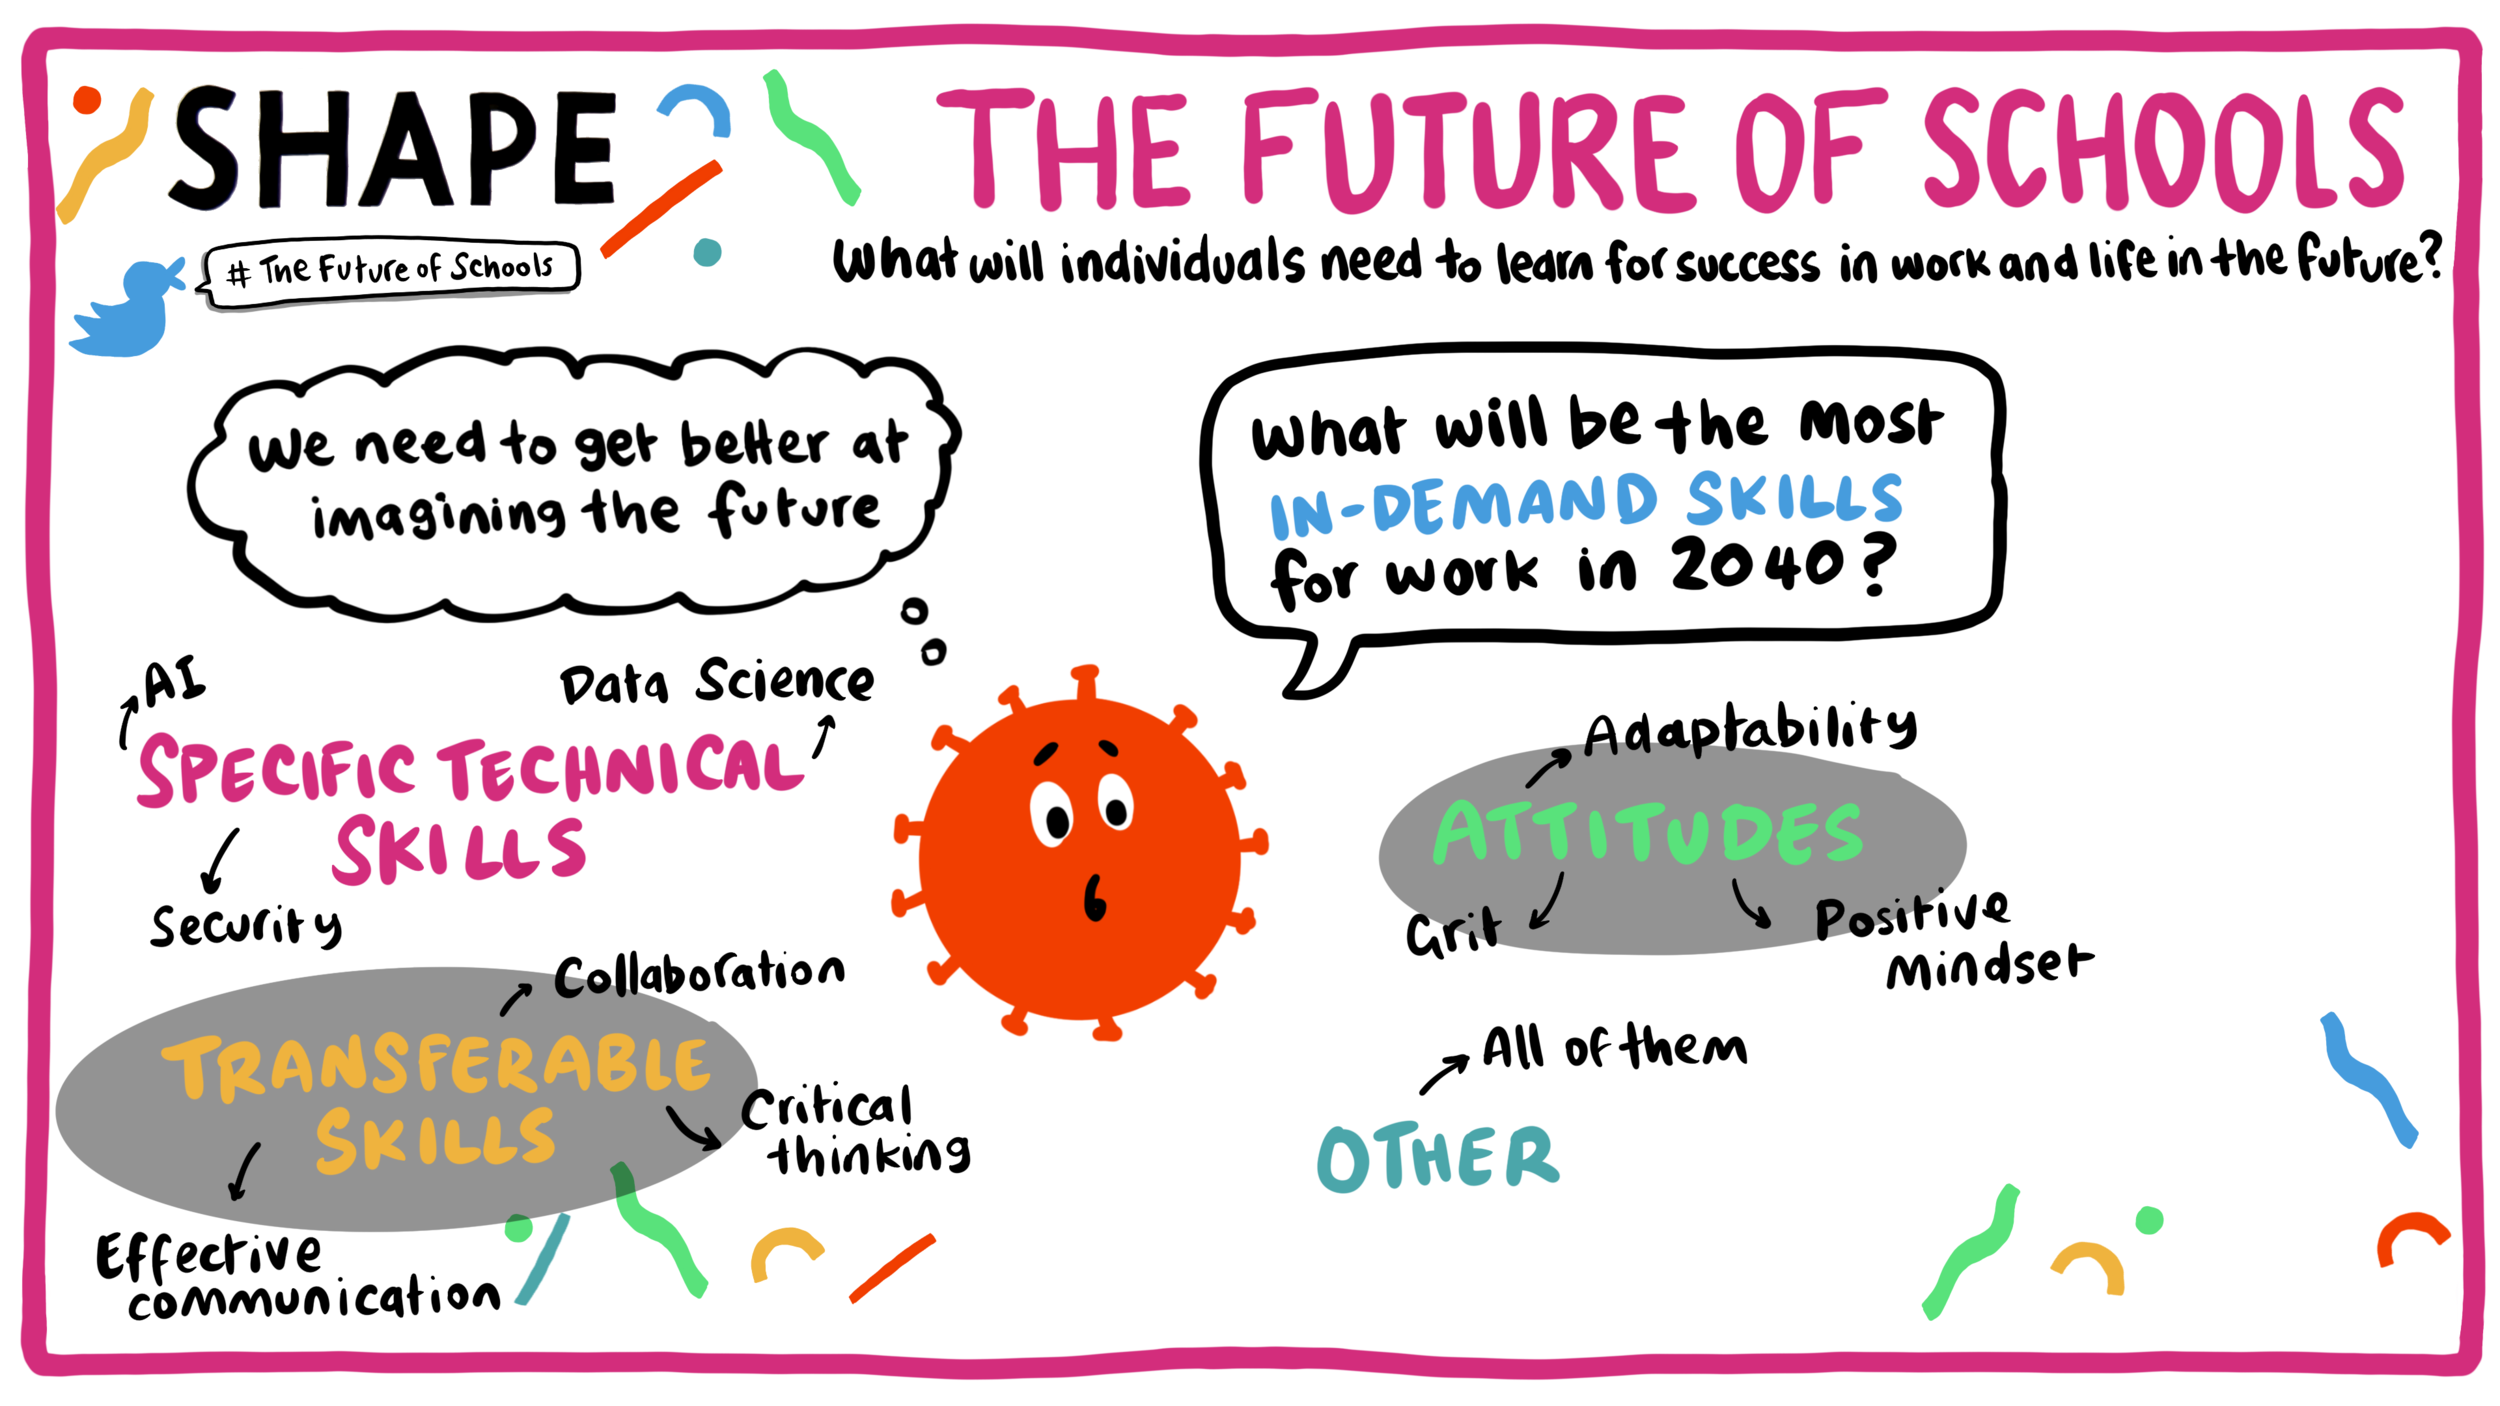 SHAPE
THE FUTURE OF SCHOOLS
# The Future of Schools
What will individuals need to learn for success in work and life in the future?
We need to get better at
imagining the future
What will be the most
IN-DEMAND SKILLS
for work in 2040?
AI
Data Science
SPECIFIC TECHNICAL
SKILLS
Security
Collaboration
TRANSFERABLE
SKILLS
Critical
thinking
Effective
communication
Adaptability
ATTITUDES
Grit
Positive
Mindset
All of them
OTHER